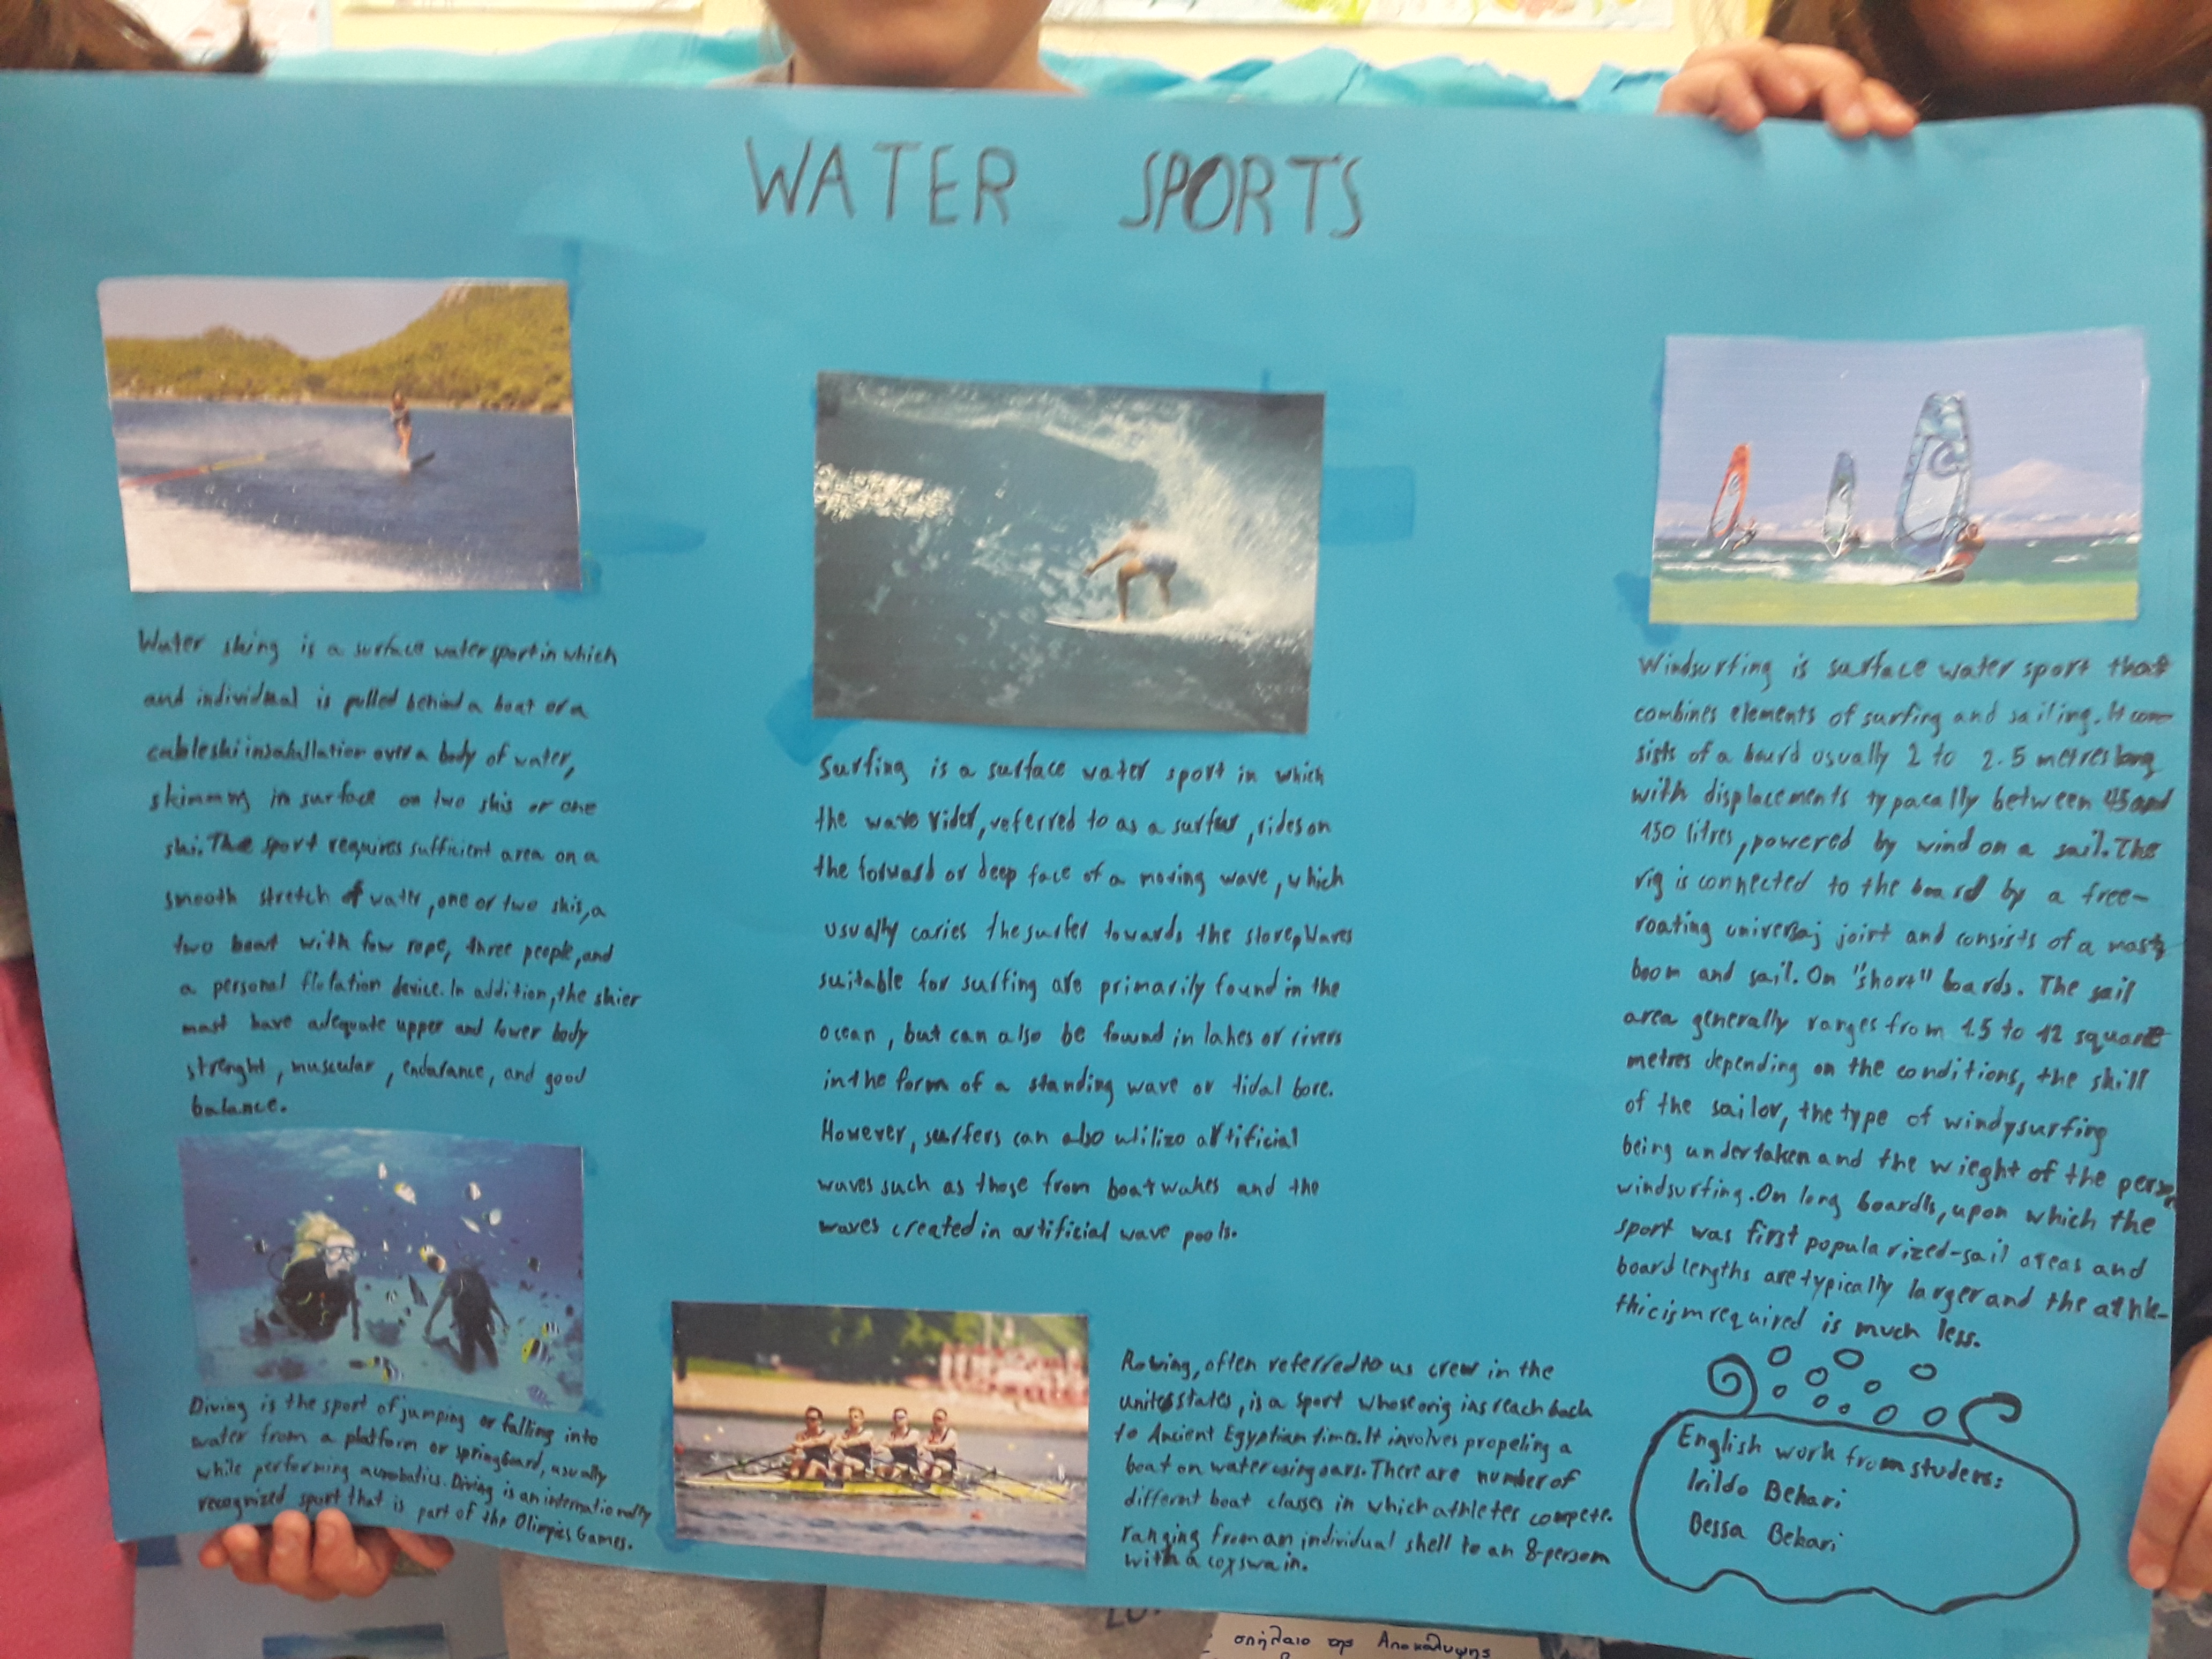 WATER SPORTS
Water sking is a surface water sport in which
and individual is pulled behind a boat or a
cable ski insatallation over a body of water,
skimmng in surface on two skis or one
ski. The sport requires sufficient area on a
smooth stretch of water, one or two skis, a
two boat with fow rope, three people, and
a personal flotation device. In addition, the skier
mast have adequate upper and lower body
strenght, muscular, endurance, and good
balance.
Diving is the sport of jumping or falling into
water from a platform or springboard, usually
while performing acrobatics. Diving is an internationally
recognized sport that is part of the Olimpics Games.
Surfing is a surface water sport in which
the wave rider, referred to as a surfur, rides on
the forward or deep face of a moving wave, which
usually caries the surfer towards the Waves
suitable for surfing are primarily found in the
ocean, but can also be fownd in lakes or rivers
in the form of a standing wave or tidal bore.
However, surfers can also utilize artificial
waves such as those from boat wakes and the
waves created in artificial wave pools.
Rowing, often referred to us crew in the
united states, is a sport whose orig ins reach back
to Ancient Egyptian times. It involves propeling a
boat on water using oars. There are number of
differnt boat classes in which athletes compete.
ranging from an individual shell to an 8-person
with a coxswain.
Windsurfing is surface water sport that
combines elements of surfing and sailing. It con-
sists of a board usually 2 to 2.5 metres long
with displacements typacally between 45 and
150 litres, powered by wind on a sail. The
rig is connected to the board by a free-
roating universaj joint and consists of a mast
boom and sail. On "short" boards. The sail
area generally ranges from 1.5 to 12 square
metres depending on the conditions, the skill
of the sailor, the type of windysurfing
being undertaken and the wieght of the person
windsurfing. On long boards, upon which the
sport was first popula rized-sail areas and
board lengths are typically larger and the athle-
thicism required is much less.
English work from students:
Irildo Bekari
Dessa Bekari
σπήλαιο της Αποκάλυψης